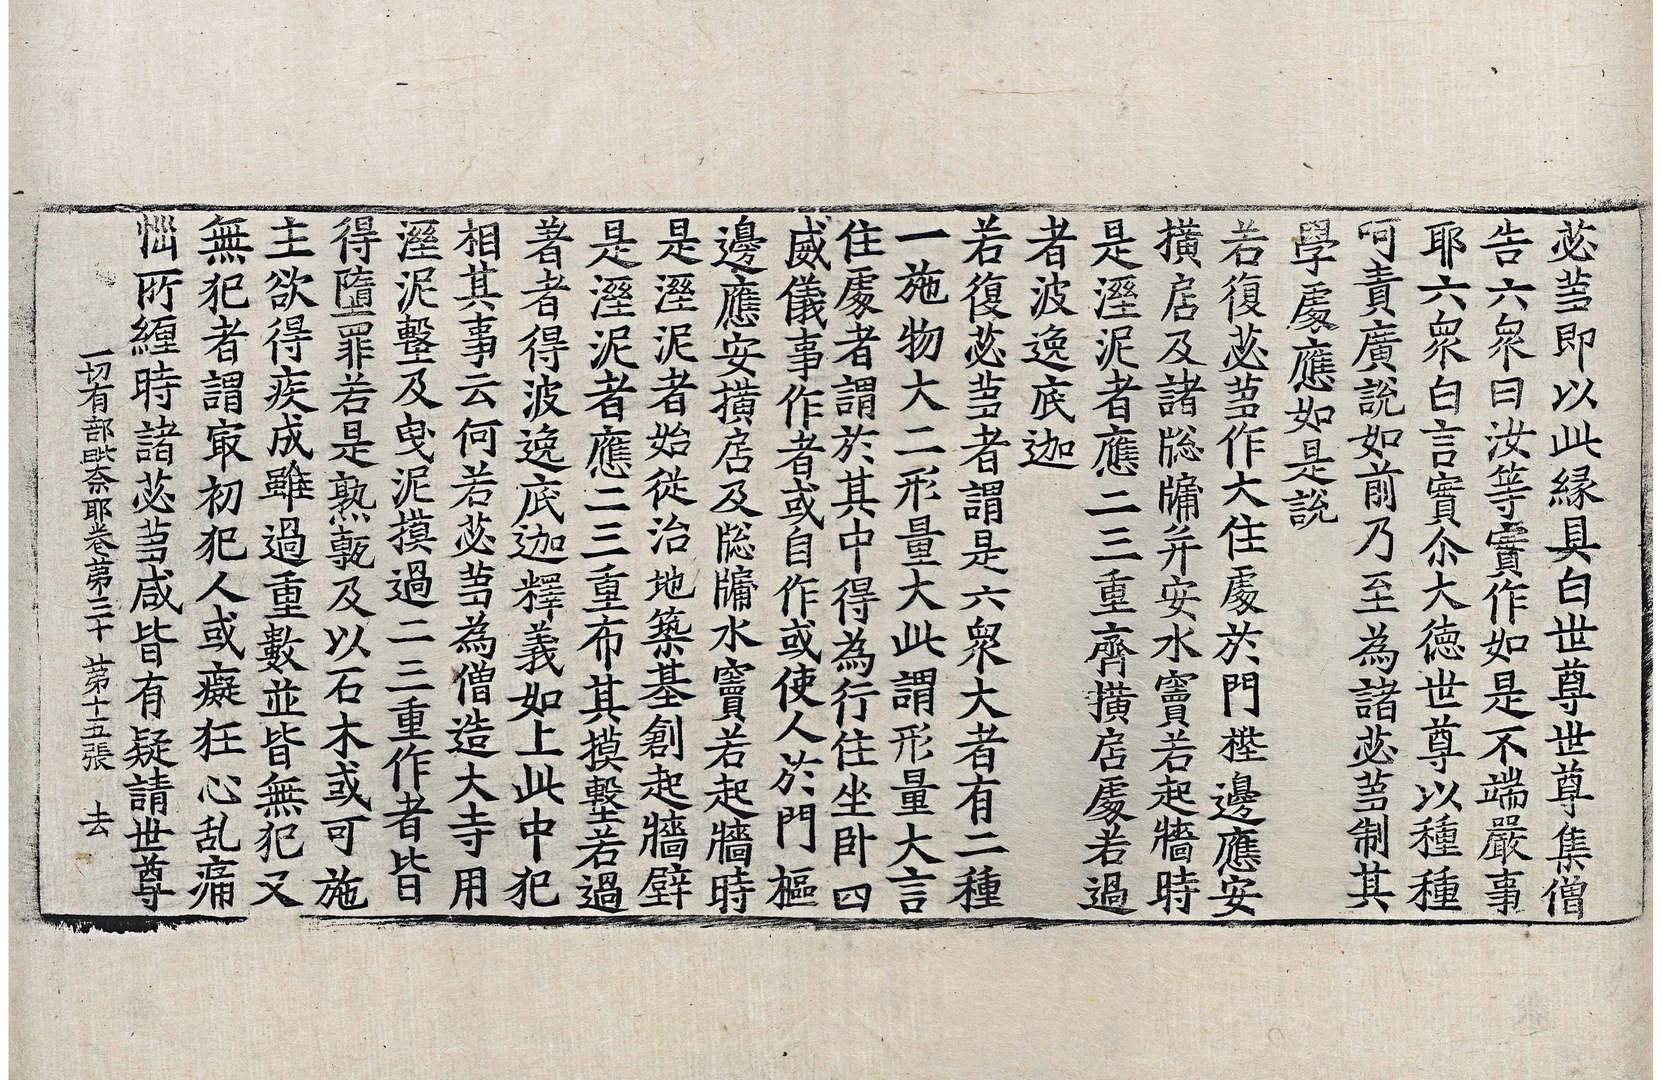 苾蒭即以此緣具白世尊世尊集僧
告六衆曰汝等實作如是不端嚴事
耶六衆白言實尒大德世尊以種種
呵責廣說如前乃至為諸苾蒭制其
學處應如是說
若復苾蒭作大住處於門樘邊應安
横扂及諸牕牖并安水竇若起牆時
是溼泥者應二三重齊横扂處若過
者波逸底迦
若復苾蒭者謂是六衆大者有二種
一施物大二形量大此謂形量大言
住處者謂於其中得為行住坐卧四
威儀事作者或自作或使人於門樞
邊應安横扂及牕牖水竇若起牆時
是溼泥者始從治地築基創起牆壁
是溼泥者應二三重布其摸墼若過
著者得波逸底迦釋義如上此中犯
相其事云何若苾蒭為僧造大寺用
溼泥墼及曳泥摸過二三重作者皆
得墮罪若是熟甎及以石木或可施
主欲得疾成雖過重數並皆無犯又
無犯者謂㝡初犯人或癡狂心乱痛
惱所纏時諸苾蒭咸皆有疑請世尊
一切有部毗奈耶卷第三十 第十五張 去